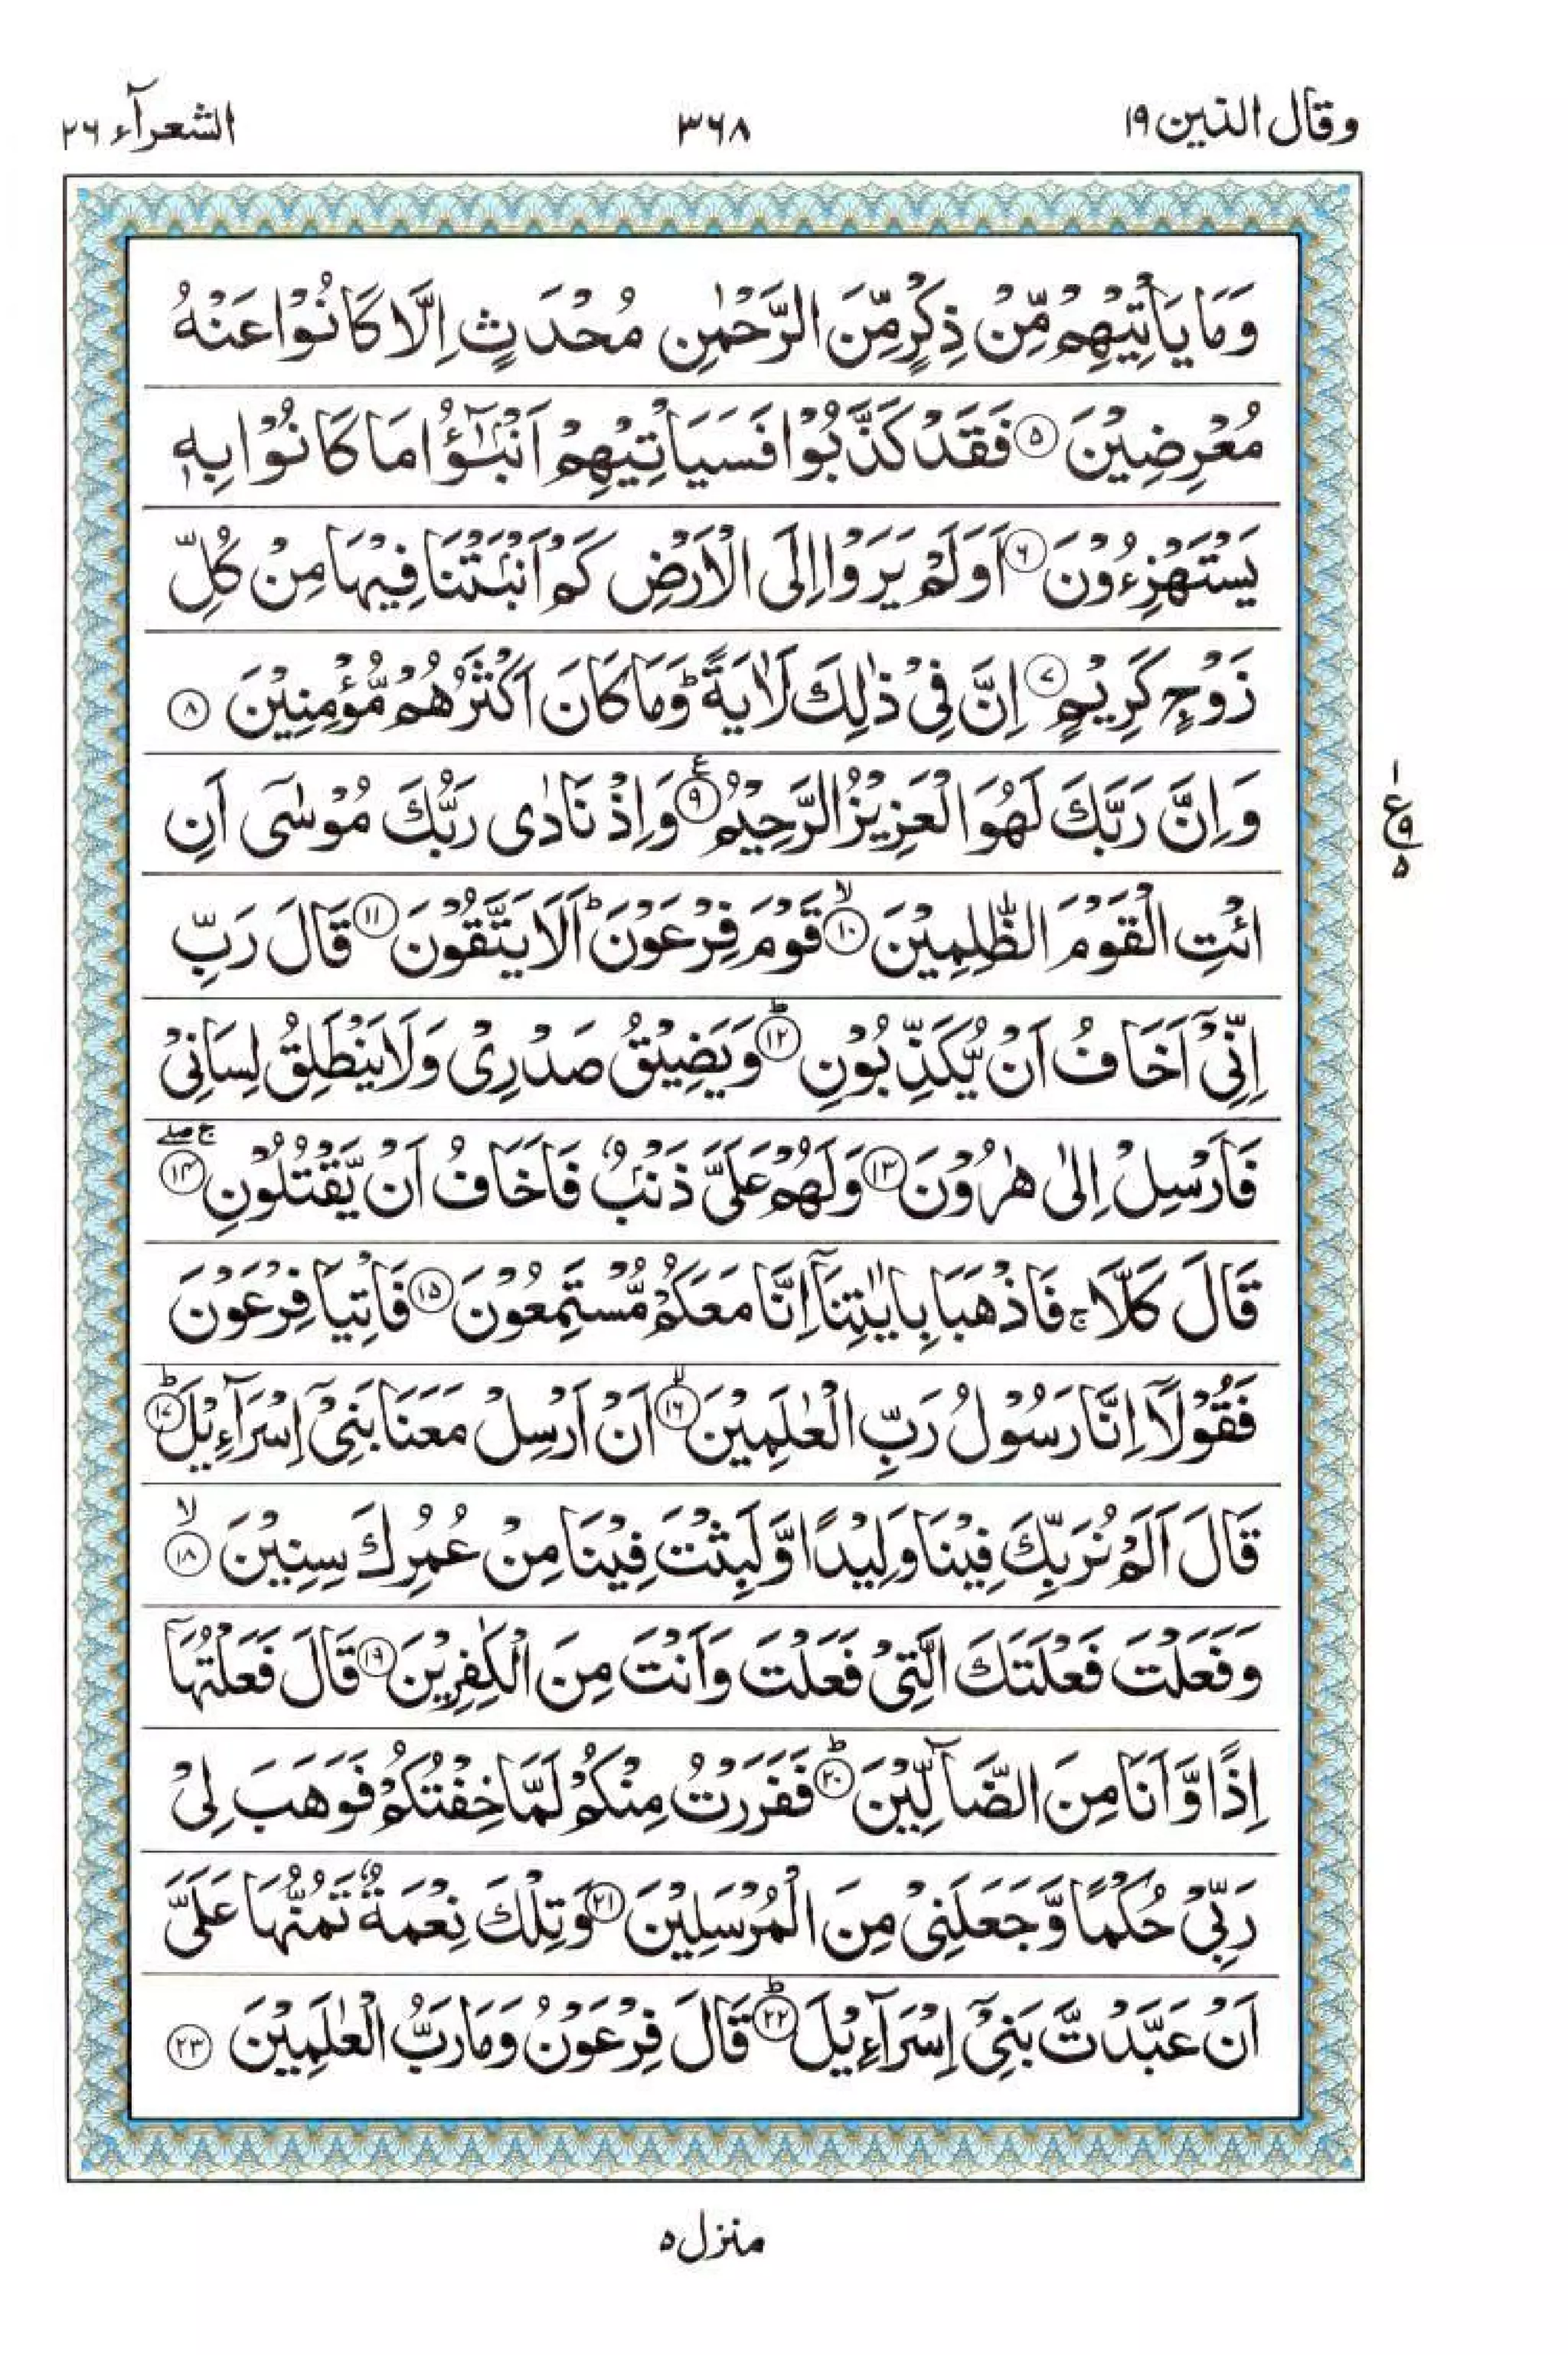 وقال الذين ١٩
٣٦٨
الشعرآء ٢٦
وَمَا يَاْتِيْهِمْ مِّنْ ذِكْرٍ مِّنَ الرَّحْمٰنِ مُحْدَثٍ اِلَّا كَانُوْا عَنْهُ
مُعْرِضِيْنَ ۵ فَقَدْ كَذَّبُوْا فَسَيَاْتِيْهِمْ اَنْۢبٰٓؤُا مَا كَانُوْا بِهٖ
يَسْتَهْزِءُوْنَ ۶ اَوَلَمْ يَرَوْا اِلَى الْاَرْضِ كَمْ اَنْۢبَتْنَا فِيْهَا مِنْ كُلِّ
زَوْجٍ كَرِيْمٍ ۷ اِنَّ فِيْ ذٰلِكَ لَاٰيَةً ؕ وَمَا كَانَ اَكْثَرُهُمْ مُّؤْمِنِيْنَ ۸
وَاِنَّ رَبَّكَ لَهُوَ الْعَزِيْزُ الرَّحِيْمُ ۹ ع وَاِذْ نَادٰى رَبُّكَ مُوْسٰٓى اَنِ
ع ١ ٩ ۵
ائْتِ الْقَوْمَ الظّٰلِمِيْنَ ۱۰ۙ قَوْمَ فِرْعَوْنَ ؕ اَلَا يَتَّقُوْنَ ۱۱ قَالَ رَبِّ
اِنِّيْٓ اَخَافُ اَنْ يُّكَذِّبُوْنِ ۱۲ؕ وَيَضِيْقُ صَدْرِيْ وَلَا يَنْطَلِقُ لِسَانِيْ
فَاَرْسِلْ اِلٰى هٰرُوْنَ ۱۳ وَلَهُمْ عَلَيَّ ذَنْۢبٌ فَاَخَافُ اَنْ يَّقْتُلُوْنِ ۱۴ ج صلے
قَالَ كَلَّا ۚ فَاذْهَبَا بِاٰيٰتِنَآ اِنَّا مَعَكُمْ مُّسْتَمِعُوْنَ ۱۵ فَاْتِيَا فِرْعَوْنَ
فَقُوْلَآ اِنَّا رَسُوْلُ رَبِّ الْعٰلَمِيْنَ ۱۶ۙ اَنْ اَرْسِلْ مَعَنَا بَنِيْٓ اِسْرَآءِيْلَ ۱۷ؕ
قَالَ اَلَمْ نُرَبِّكَ فِيْنَا وَلِيْدًا وَّلَبِثْتَ فِيْنَا مِنْ عُمُرِكَ سِنِيْنَ ۱۸ۙ
وَفَعَلْتَ فَعْلَتَكَ الَّتِيْ فَعَلْتَ وَاَنْتَ مِنَ الْكٰفِرِيْنَ ۱۹ قَالَ فَعَلْتُهَآ
اِذًا وَّاَنَا مِنَ الضَّآلِّيْنَ ۲۰ؕ فَفَرَرْتُ مِنْكُمْ لَمَّا خِفْتُكُمْ فَوَهَبَ لِيْ
رَبِّيْ حُكْمًا وَّجَعَلَنِيْ مِنَ الْمُرْسَلِيْنَ ۲۱ وَتِلْكَ نِعْمَةٌ تَمُنُّهَا عَلَيَّ
اَنْ عَبَّدْتَّ بَنِيْٓ اِسْرَآءِيْلَ ۲۲ؕ قَالَ فِرْعَوْنُ وَمَا رَبُّ الْعٰلَمِيْنَ ۲۳
منزل ۵